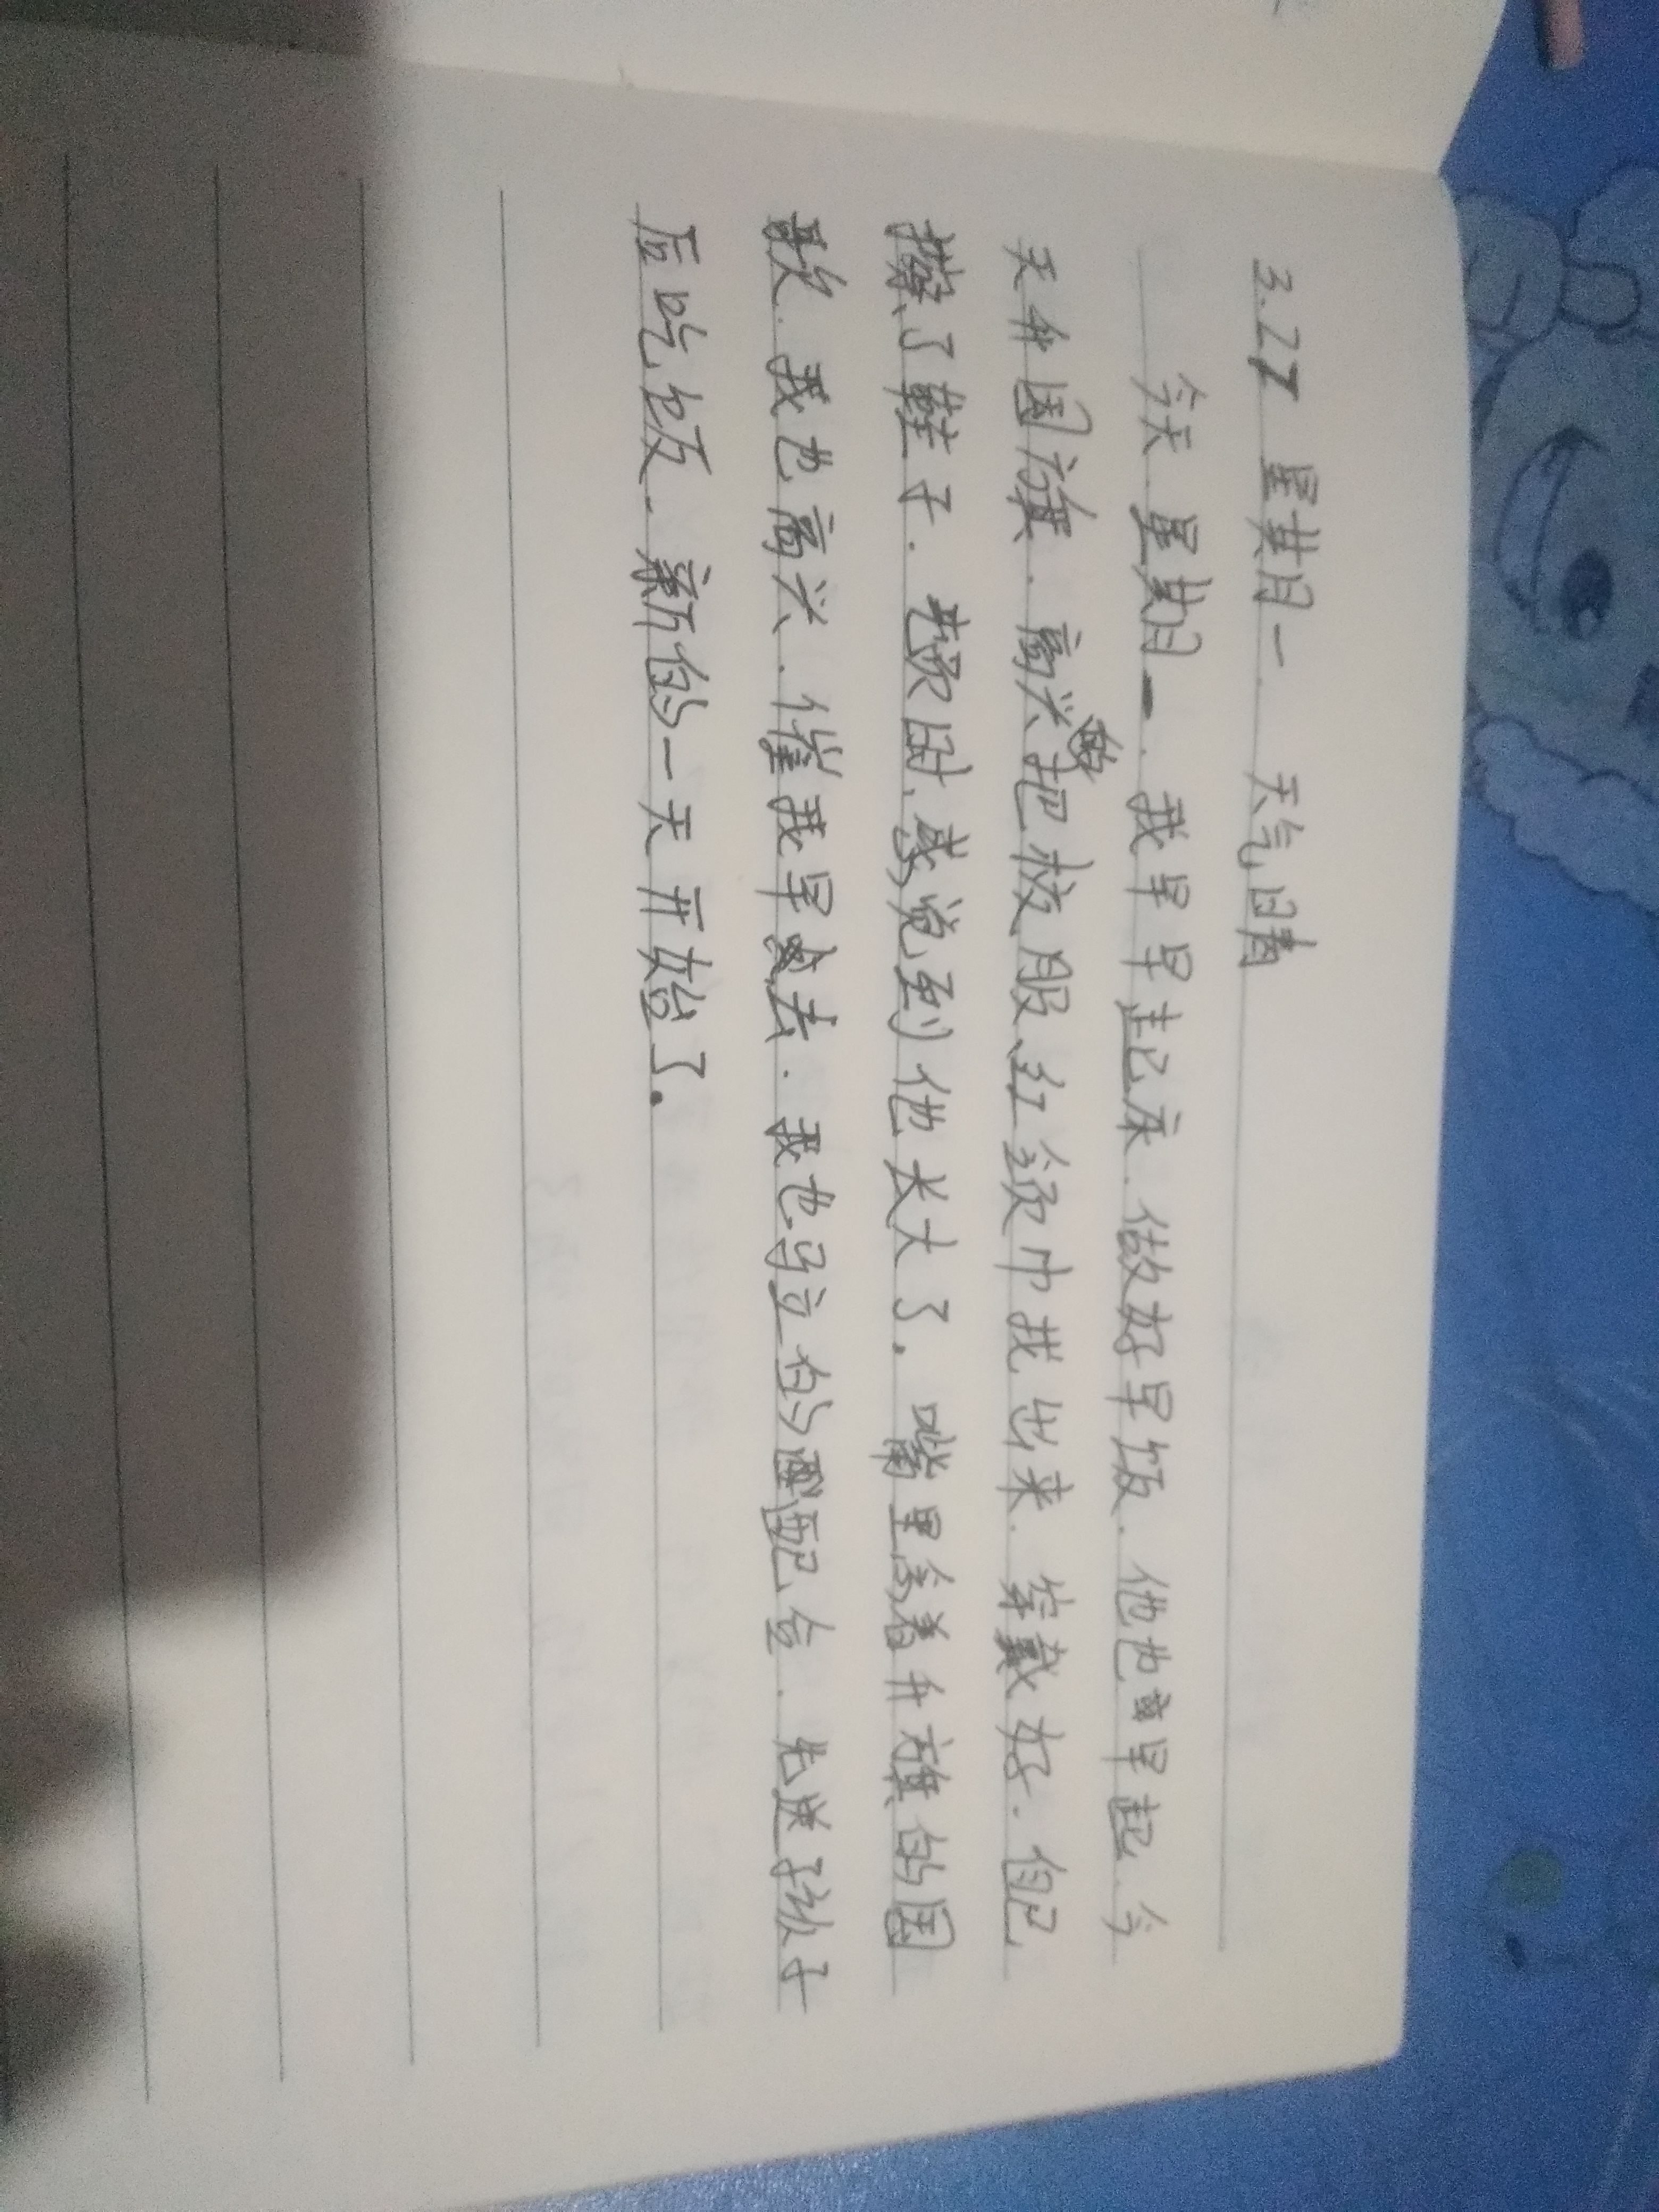 3.27 星期一 天气晴
今天星期一.我早早起床.做好早饭.他也早起.今
天升国旗.高兴的把校服、红领巾找出来.穿戴好.自己
擦了鞋子.顿时感觉到他长大了.嘴里念着升旗的国
歌.我也高兴.催我早去.我也马立的配合.先送孩子
后吃饭.新的一天开始了.